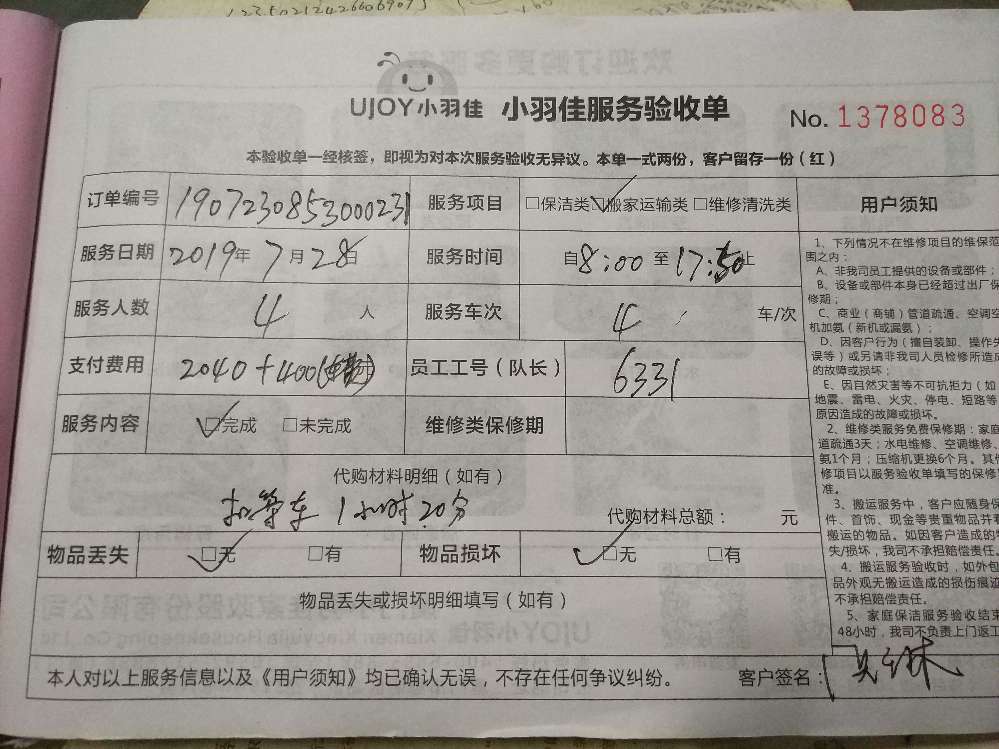 1235021242606907
UJOY小羽佳 小羽佳服务验收单 No. 1378083
本验收单一经核签，即视为对本次服务验收无异议。本单一式两份，客户留存一份（红）
订单编号 1907230853000231 服务项目 □保洁类 ☑搬家运输类 □维修清洗类
服务日期 2019年 7月28日 服务时间 自8:00 至17:50止
服务人数 4 人 服务车次 4 车/次
支付费用 2040+400 员工工号（队长） 6331
服务内容 ☑完成 □未完成 维修类保修期
代购材料明细（如有）
扣等车1小时20分 代购材料总额： 元
物品丢失 ☑无 □有 物品损坏 ☑无 □有
物品丢失或损坏明细填写（如有）
本人对以上服务信息以及《用户须知》均已确认无误，不存在任何争议纠纷。 客户签名：
用户须知
1、下列情况不在维修项目的维保范
围之内：
A、非我司员工提供的设备或部件；
B、设备或部件本身已经超过出厂保
修期；
C、商业（商铺）管道疏通、空调空
机加氨（新机或漏氨）；
D、因客户行为（擅自装卸、操作失
误等）或另请非我司人员检修所造成
的故障或损坏；
E、因自然灾害等不可抗拒力（如
地震、雷电、火灾、停电、短路等
原因造成的故障或损坏。
2、维修类服务免费保修期：家庭
道疏通3天；水电维修、空调维修、
氨1个月；压缩机更换6个月。其他
修项目以服务验收单填写的保修
准。
3、搬运服务中，客户应随身保
件、首饰、现金等贵重物品并
搬运的物品。如因客户造成的
失/损坏，我司不承担赔偿责任。
4、搬运服务验收时，如外包
品外观无搬运造成的损伤痕迹
不承担赔偿责任。
5、家庭保洁服务验收结束
48小时，我司不负责上门返工